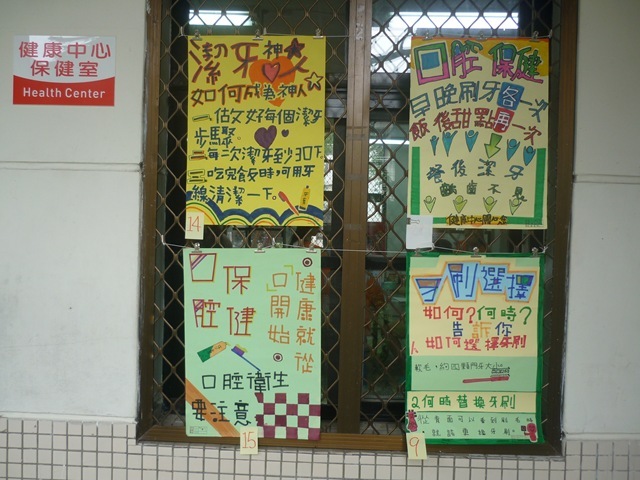 健康中心
保健室
Health Center
潔牙神人
如何成為神人
一.做好每個潔牙
步驟。
二.每次潔牙至少30下。
三.吃完飯時,可用牙
線清潔一下。
14
口腔保健
早晚刷牙各一次
飯後甜點再一次
餐後潔牙
齲齒不見
健康中心關心您
口腔
保健
口健
開康
始就
從
口腔衛生
要注意
15
牙刷選擇
如何?何時?
告訴你
1.如何選擇牙刷
軟毛,約四顆門牙大小
2何時替換牙刷
就該更換牙刷。
9